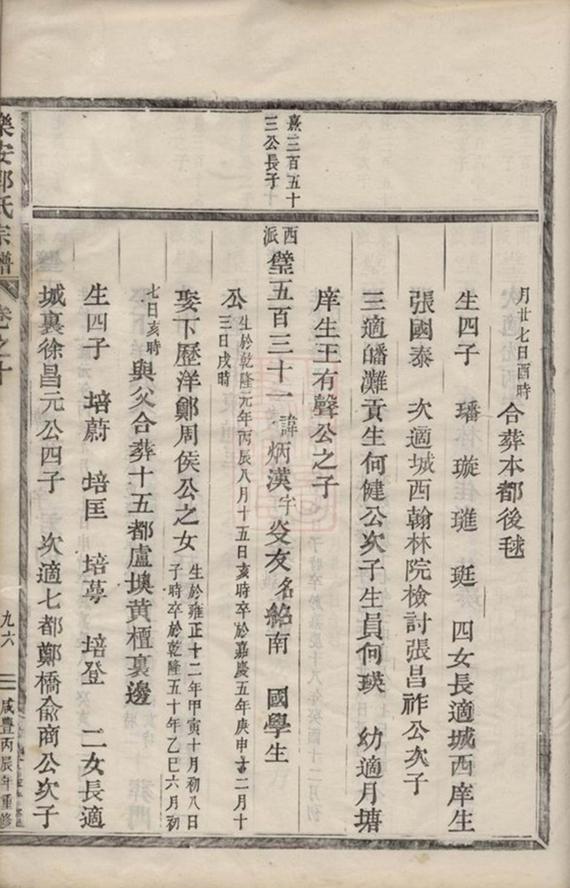 熹三百五十
三公長子
月廿七日酉時 合葬本都後毬
生四子 璠 璇 璡 珽 四女長適城西庠生
張國泰 次適城西翰林院檢討張昌祚公次子
三適皤灘貢生何健公次子生員何瑛 幼適月塘
庠生王有聲公之子
西派 璧五百三十一 諱炳漢字焱友名銘南 國學生
公 生於乾隆元年丙辰八月十五日亥時卒於嘉慶五年庚申十二月十
三日戌時
娶下歷洋鄭周侯公之女 生於雍正十二年甲寅十月初八日
子時卒於乾隆五十年乙巳六月初
七日亥時 與父合葬十五都盧墺黃檀裏邊
生四子 培蔚 培匡 培蕚 培登 二女長適
城裏徐昌元公四子 次適七都鄭橋俞商公次子
樂安郭氏宗譜 卷之十
九六
咸豐丙辰年重修